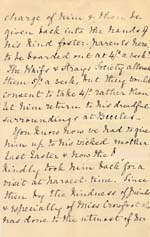 charge of him & then be
given back into the hands of
his kind foster parents here,
to be boarded out at 4/- a week.
The Waifs & Strays Society allows
them 5/- a week, but they would
consent to take 4/- rather than
let him return to his dreadful
surroundings at Beccles.
You know how we had to give
him up to his wicked mother
last Easter & how the
kindly took him back for a
visit at harvest time. Since
then by the kindness of friends
& especially of Miss Crowfoot who
has done to the utmost of her